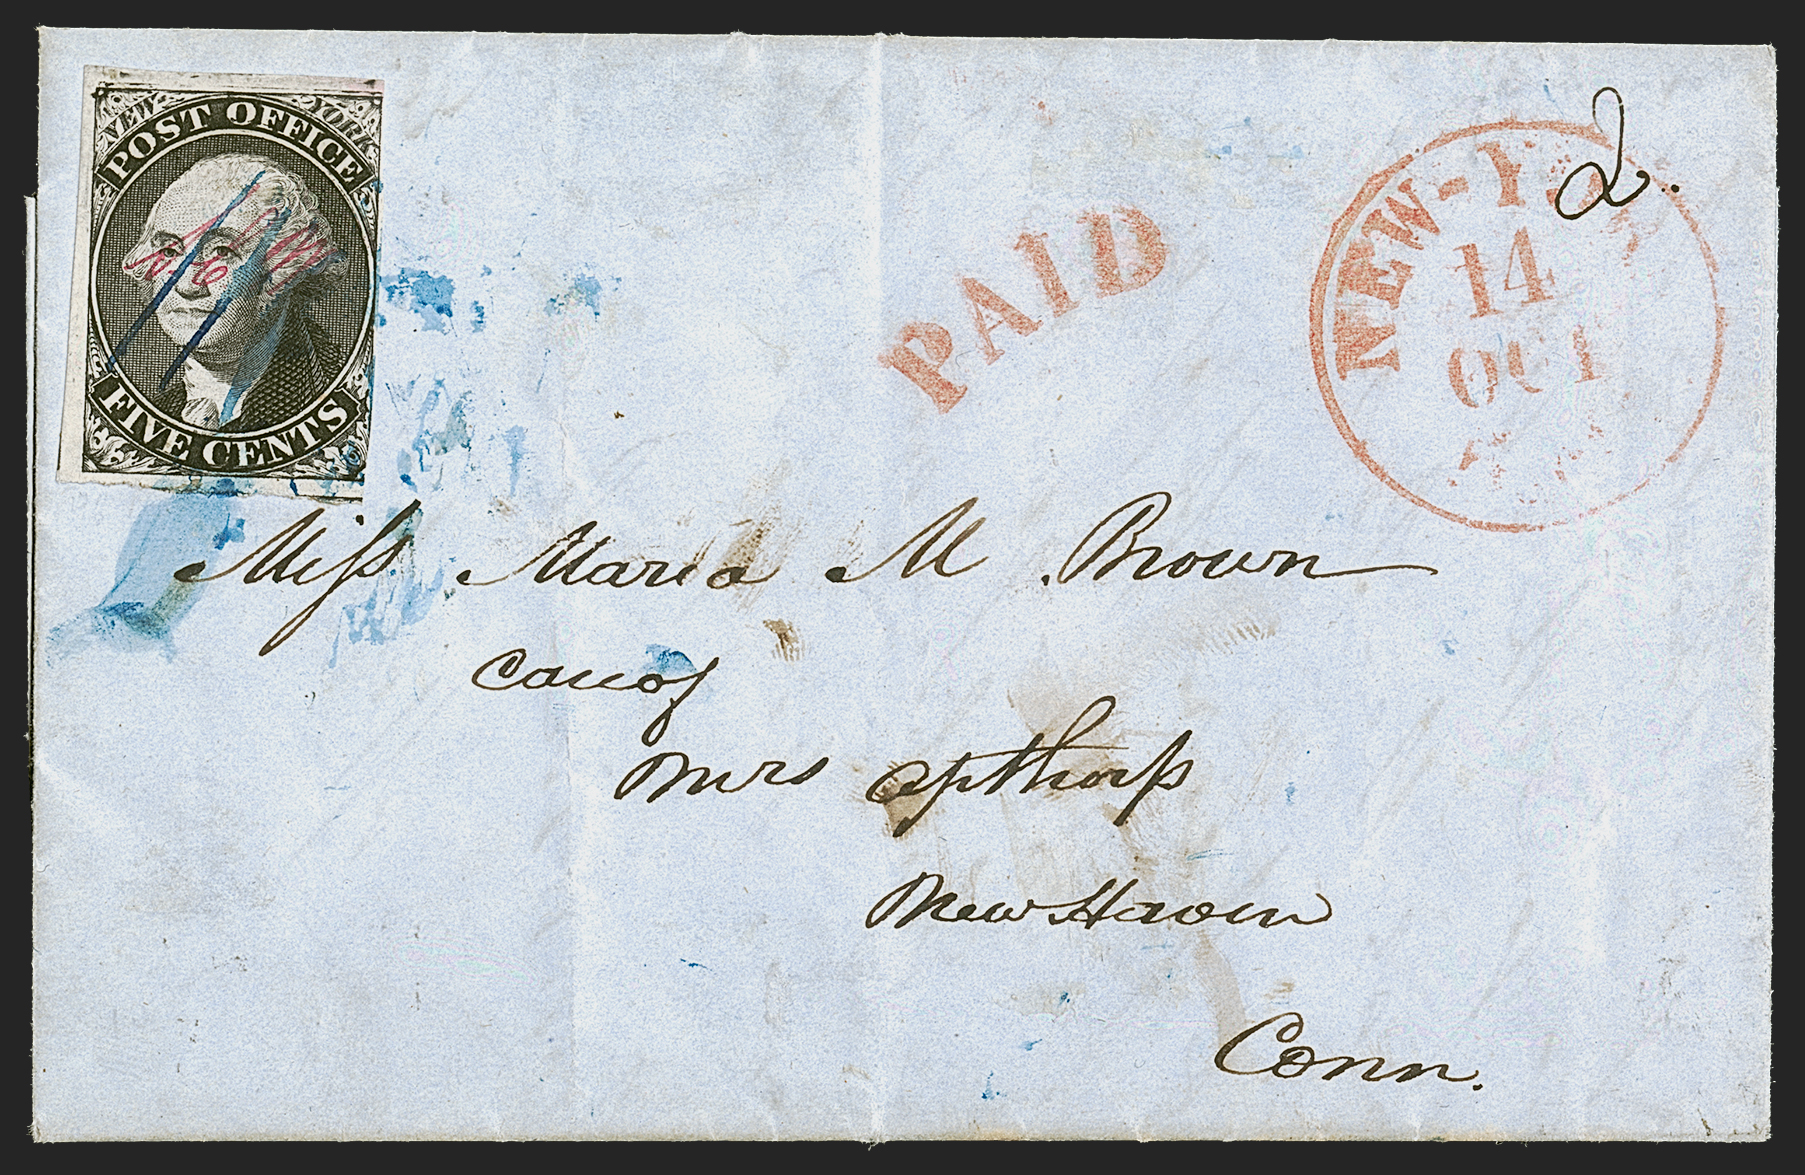 NEW YORK
POST OFFICE
FIVE CENTS
PAID
NEW-YO
14
OCT
2
Miss Maria M Brown
Care of
Mrs Apthorp
New Haven
Conn.